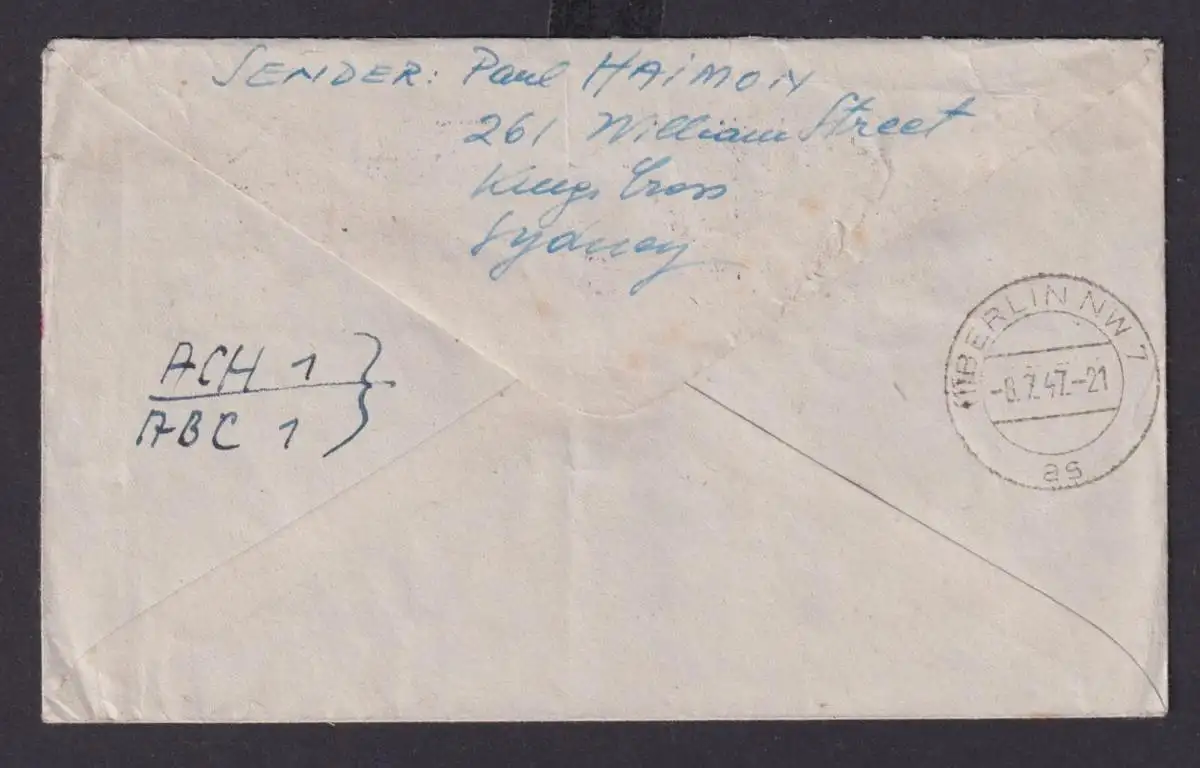 SENDER: Paul HAIMON
261 William Street
Kings Cross
Sydney
ACH 1
ABC 1
(1) BERLIN NW 7
-8.7.47.-21
as